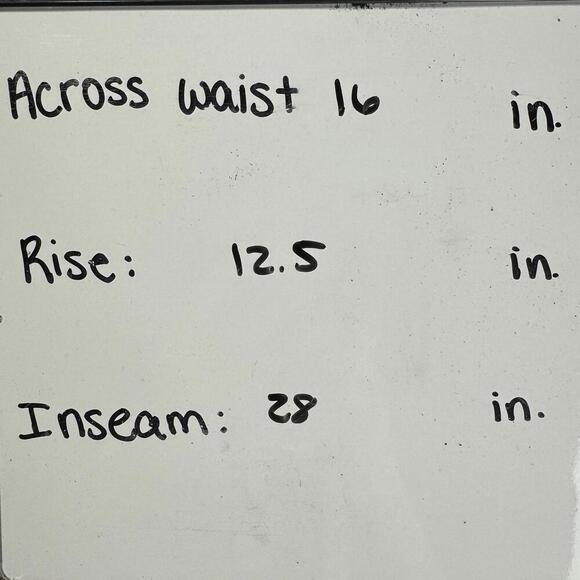 Across waist 16 in.
Rise: 12.5 in.
Inseam: 28 in.